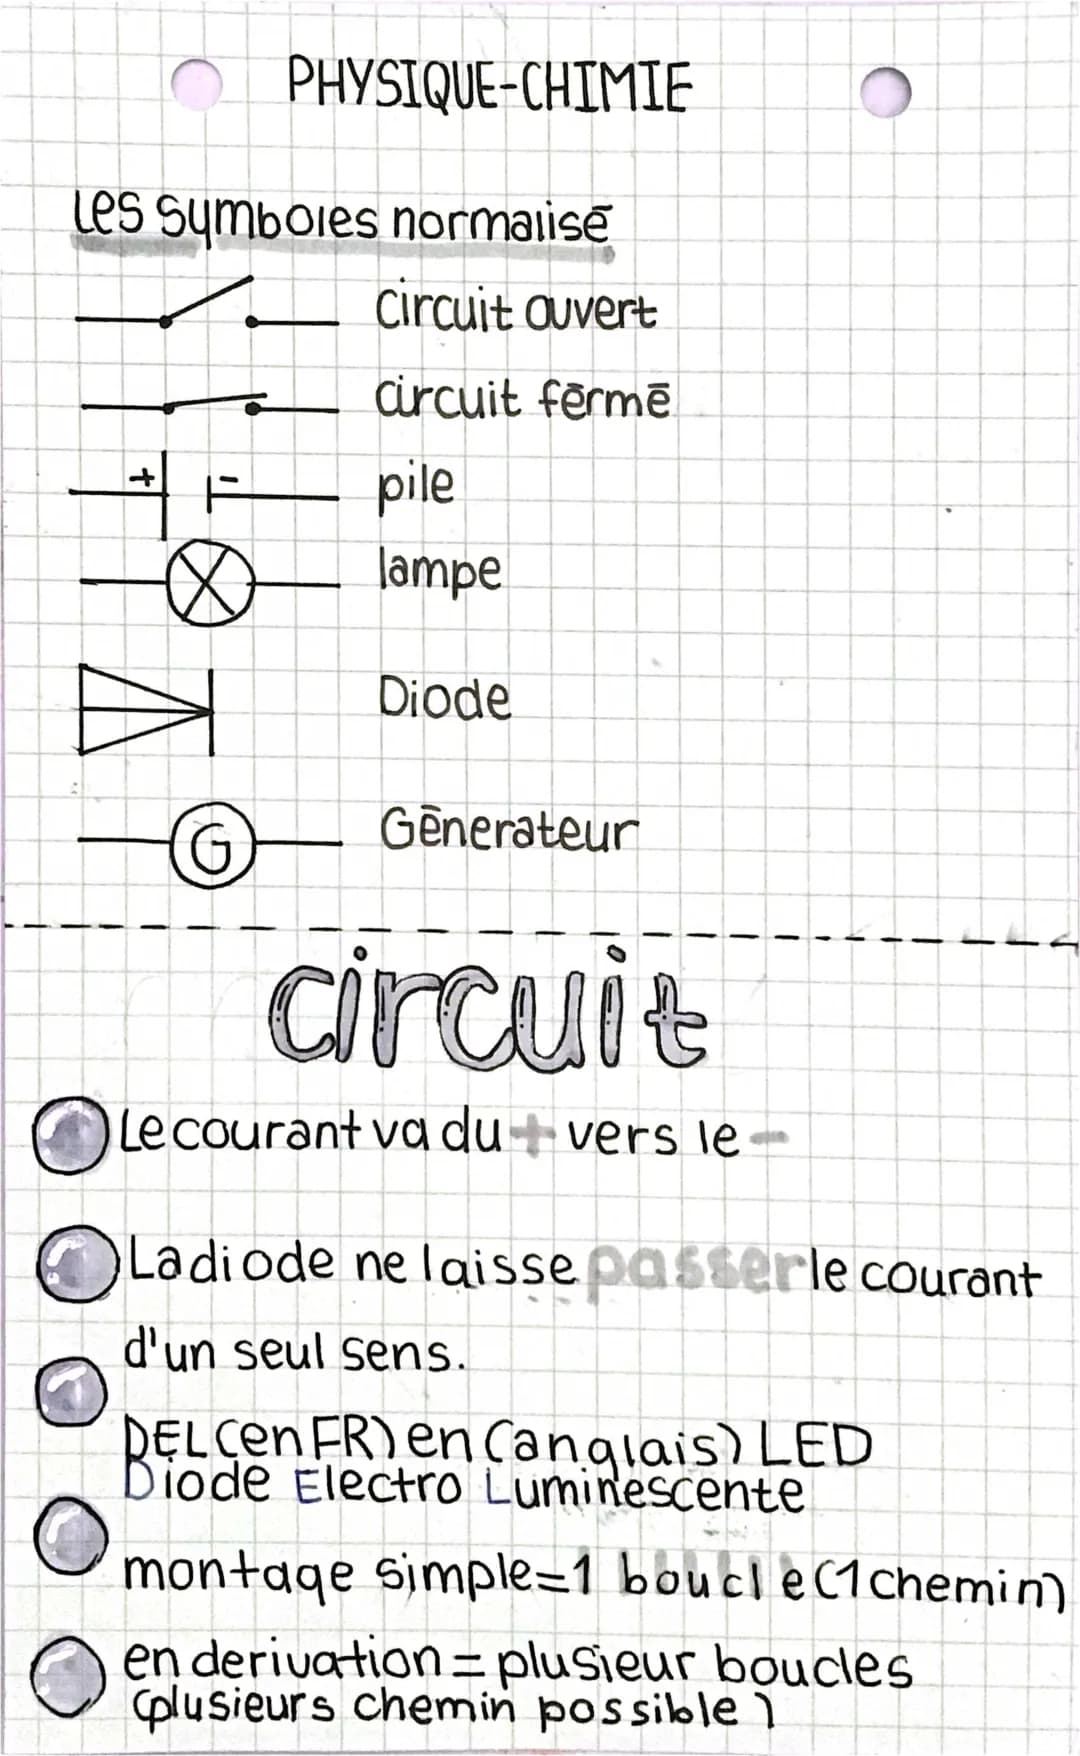 PHYSIQUE-CHIMIE
Les symboles normalisé
circuit ouvert
circuit fērmē
+ - pile
lampe
Diode
G Gēnerateur
circuit
Le courant va du + vers le -
La diode ne laisse passer le courant
d'un seul sens.
DEL (en FR) en (anglais) LED
Diode Electro Luminescente
montage simple=1 boucle (1 chemin)
en derivation = plusieur boucles
(plusieurs chemin possible)